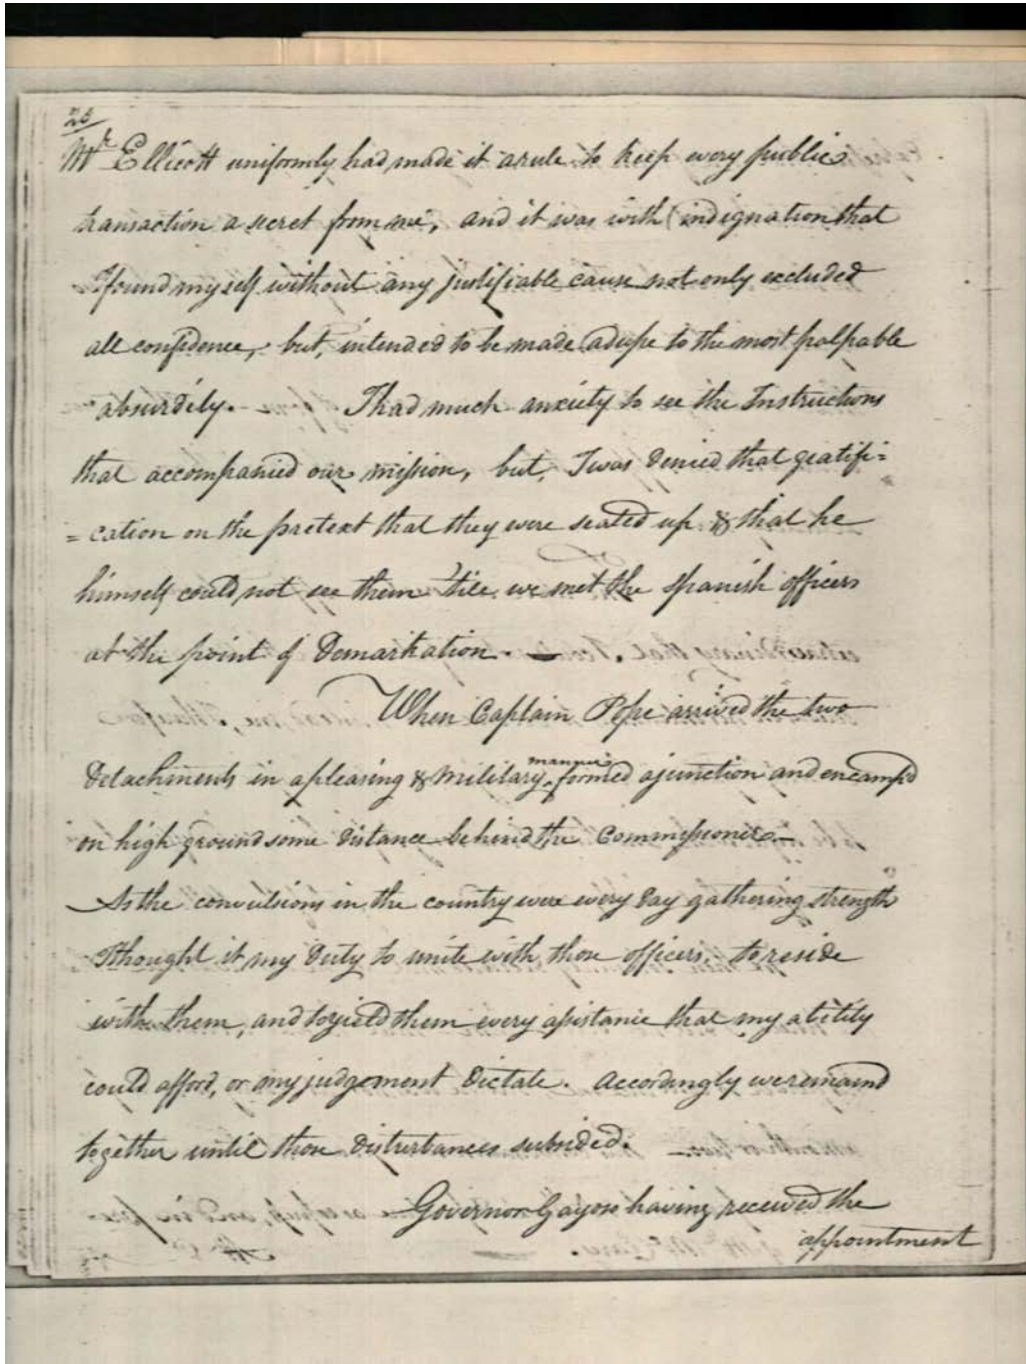 26
Mr Ellicott uniformly had made it a rule to keep every public
transaction a secret from me, and it was with indignation that
I found myself without any justifiable cause not only excluded
all confidence, but, intended to be made a dupe to the most palpable
absurdity. I had much anxiety to see the Instructions
that accompanied our mission, but, I was Denied that gratifi=
=cation on the pretext that they were sealed up & that he
himself could not see them 'till we met the Spanish officers
at the point of Demarkation.
When Captain Pope arrived the two
Detachments in a pleasing & military manner formed a junction and encamp'd
on high ground some Distance behind the Commissioner
As the convulsions in the country were every Day gathering strength
I thought it my Duty to unite with those officers, to reside
with them, and to yield them every assistance that my ability
could afford, or my judgement Dictate. Accordingly we remaind
together until those Disturbances subsided.
Governor Gayoso having received the
appointment